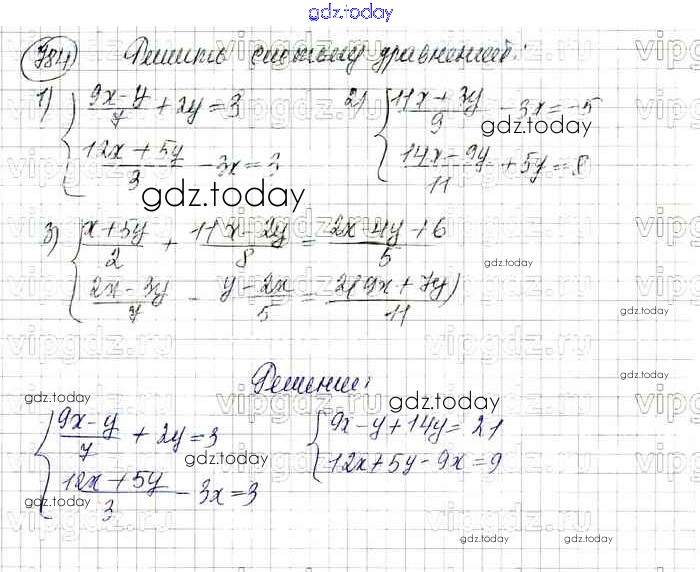 gdz.today
784) Решить систему уравнений:
1) { (9x-y)/7 + 2y = 3
(12x+5y)/3 - 3x = 3
2) { (11x+3y)/9 - 3x = -5
(14x-9y)/11 + 5y = 8
gdz.today
gdz.today
3) { (x+5y)/2 + (11x-2y)/8 = (2x-4y+6)/5
(2x-3y)/7 - (y-2x)/5 = 2(9x+7y)/11
gdz.today
gdz.today
Решение:
gdz.today
gdz.today
gdz.today
{ (9x-y)/7 + 2y = 3
(12x+5y)/3 - 3x = 3
{ 9x-y+14y = 21
12x+5y-9x = 9
gdz.today
gdz.today
gdz.today